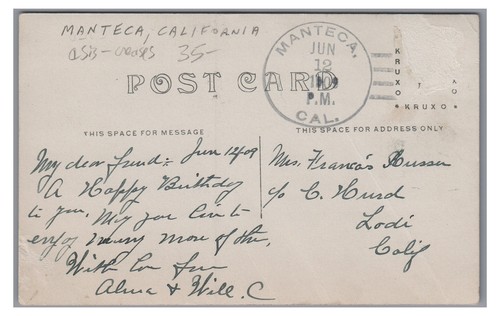 MANTECA, CALIFORNIA
35-
MANTECA,
JUN
12
P.M.
CAL.
KRUXO
KRUXO
POST CARD
THIS SPACE FOR MESSAGE
THIS SPACE FOR ADDRESS ONLY
My dear friend:- Jun 12/09
A Happy Birthday
to you. May you live to
enjoy many more of them.
With love from
Alma & Will. C
Mrs. Francis
c/o C. Hurd
Lodi
Calif